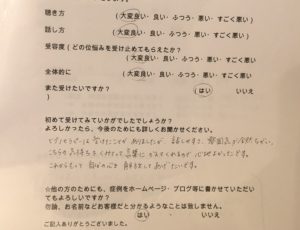 聴き方 (大変良い・良い・ふつう・悪い・すごく悪い)
話し方 (大変良い・良い・ふつう・悪い・すごく悪い)
受容度(どの位悩みを受け止めてもらえたか?
(大変良い・良い・ふつう・悪い・すごく悪い)
全体的に (大変良い・良い・ふつう・悪い・すごく悪い)
また受けたいですか?
(はい いいえ
初めて受けてみていかがでしたでしょうか?
よろしかったら、今後のためにも詳しくお聞かせください。
受けたことが ありましたが 話しやすく、雰囲気が
こちらの気持ちを 言葉に
これからも 自分の心を 解き あげたいです。
☆他の方のためにも、症例をホームページ・ブログ等に書かせていただい
てもよろしいですか?
勿論、お名前などお客様だと分かるようなことは致しません。
はい いいえ
ご記入ありがとうございました。